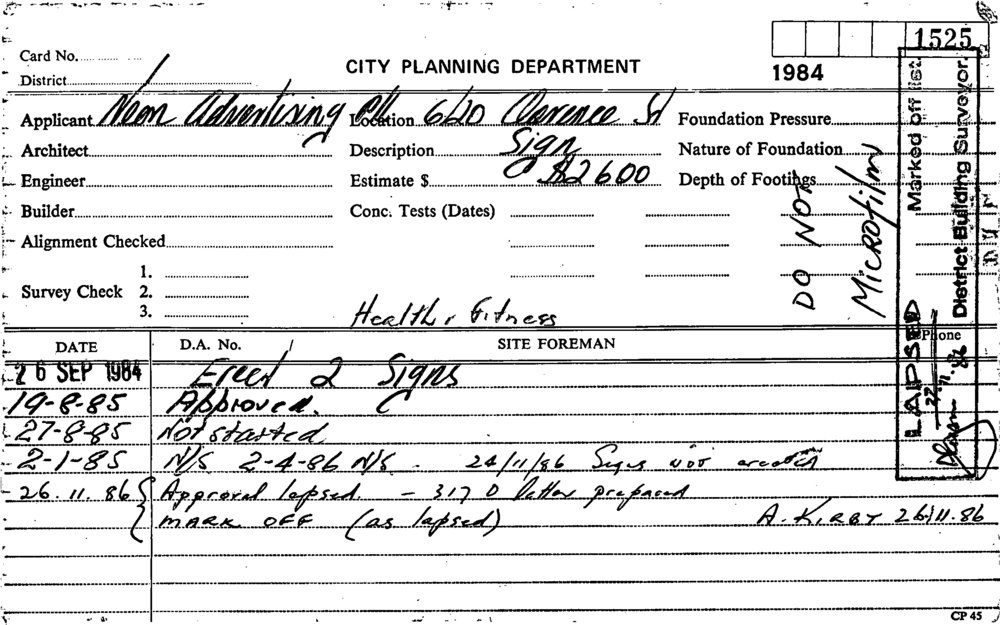 1525
Card No.
CITY PLANNING DEPARTMENT
1984
District
Applicant Neon Advertising P/L Location 6/20 Clarence St Foundation Pressure
Architect Description Sign Nature of Foundation
Engineer Estimate $ $2600 Depth of Footings
Builder Conc. Tests (Dates)
Alignment Checked
1.
Survey Check 2.
3.
Health & Fitness
DO NOT
Microfilm
Marked off list.
District Building Surveyor.
LAPSED
27.11.86
DATE D.A. No. SITE FOREMAN Phone
26 SEP 1984 Erect 2 Signs
19-8-85 Approved.
27-8-85 Not started
2-1-85 N/S 2-4-86 N/S - 24/11/86 Signs not erected
26.11.86 Approval lapsed - 317 D letter prepared
MARK OFF (as lapsed) A. KIRBY 26.11.86
CP 45